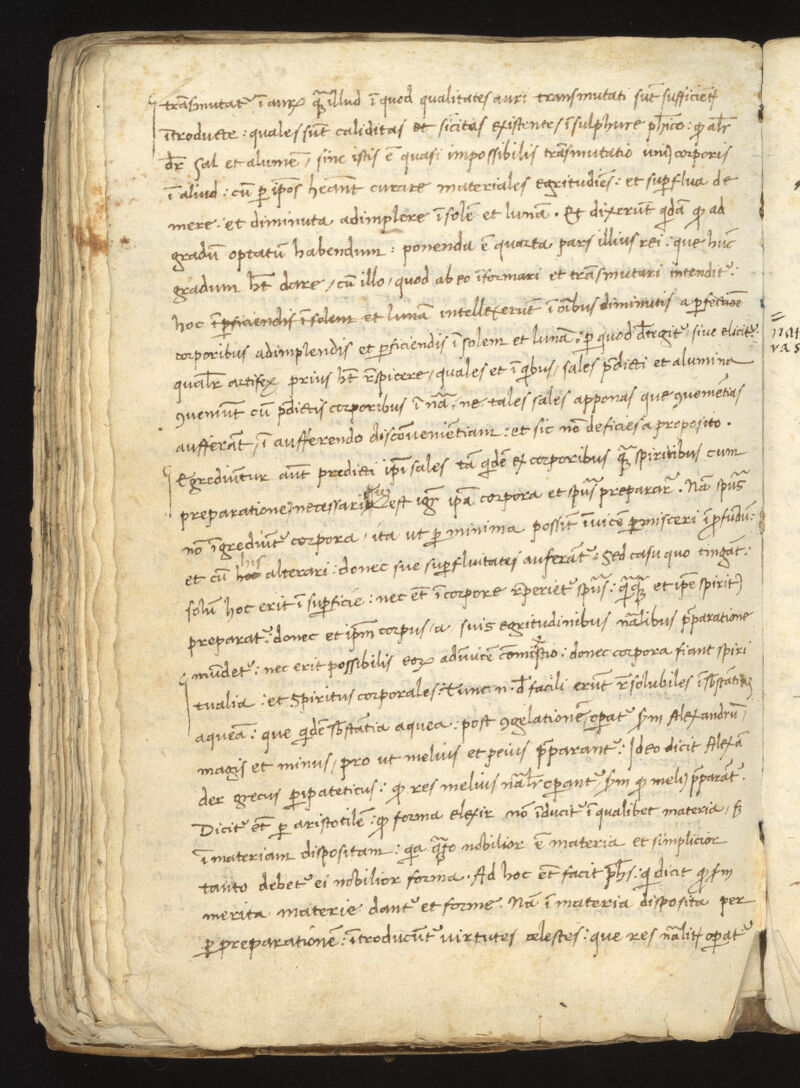 trāsmutat᷑ ī auꝝ q̄ illud ī quod qualitates auri transmutati sūt sufficienť
ītroducte : quales sūt caliditas et sicitas existentes ī sulphure pħico : alr̄
dr̄ sal et alumē / sine istis ē quasi impossibilis trāsmutatio uniꝰ corporis
ī aliud : cū ip̄os heānt curare materiales egritudīes : et suꝑflua de
mere : et diminuta adimplere ī solē et lunā . Et dixerūt qđā ad
gradū optatū habendum : ponenda ē quarta pars illius rei : que hūc
gradum ħt dare / cū illo / quod ab eo īformari et trāsmutari intendit᷑ :
hoc īꝑficiendis ī solem et lunam intellexerūt ī oībus diminutis a ꝑfectiōe
corporibus adimplendis et ꝑficiendis ī solem et lunā : ꝑ quod siue elicit᷑ :
qualr̄ artifex prius ħt r̄spicere / quales et ī qbus / sales p̄dicti et alumina
ꝯueniūt cū p̄dictis corporibus ī nā . ne tales sales apponas que ꝯueniētias
aufferāt / ī aufferendo discōvenientiam : et sic nō deficies a proposito .
Egrediūtur aūt predicti ip̄i sales tā qdē ex corporibus q̄ spiritibus cum
preparatione necessari est igr̄ ip̄a corpora et sp̄us preparar̄ . Nā sp̄us
nō īgrediūt᷑ corpora / ita ut ꝑ minima possīt īuicē ꝑmisceri ī ꝓfundū :
et cū hijs alterari : donec sue suꝑfluitates auferāt᷑ : Sed casu quo tingāt :
solū hoc erit ī suꝑficie : nec ēt ī corpore r̄periet᷑ sp̄us : et ip̄e spiritꝰ
preparat᷑ : donec et ip̄m corpus / a suis egritudinibus nālibus p̄paratione
mūdet᷑ : nec erit possibilis eoꝝ adīuicē comīxtio : donec corpora fiant spiri
tualia : et Spiritus corporales : Tunc .n. d̄ facili erūt r̄solubiles ī sb̄stātiā
aqueā : que qdē sb̄stātia aquea : post ꝯgelationē oꝑat᷑ sm̄ Alexandrū /
magis et minus / pro ut melius et peius p̄parant᷑ : Ideo dicit Alexā
der grecus ꝑipateticus : res melius nālr̄ oꝑant᷑ sm̄ meliꝰ p̄parāt᷑ .
Dicit᷑ ēt ꝑ aristotilē : forma elexir nō īducit᷑ ī qualibet materia / s
ī materiam dispositam : qa q̄to nobilior ē materia et simplicior
tanto debet᷑ ei nobilior forma . Ad hoc ēt facit pħs : q dicit sm̄
merita materie dant᷑ et forme . Nā ī materia disposita per
ꝑ preparationē : ītroducūt᷑ virtutes celestes : que res nālit᷑ oꝑat᷑